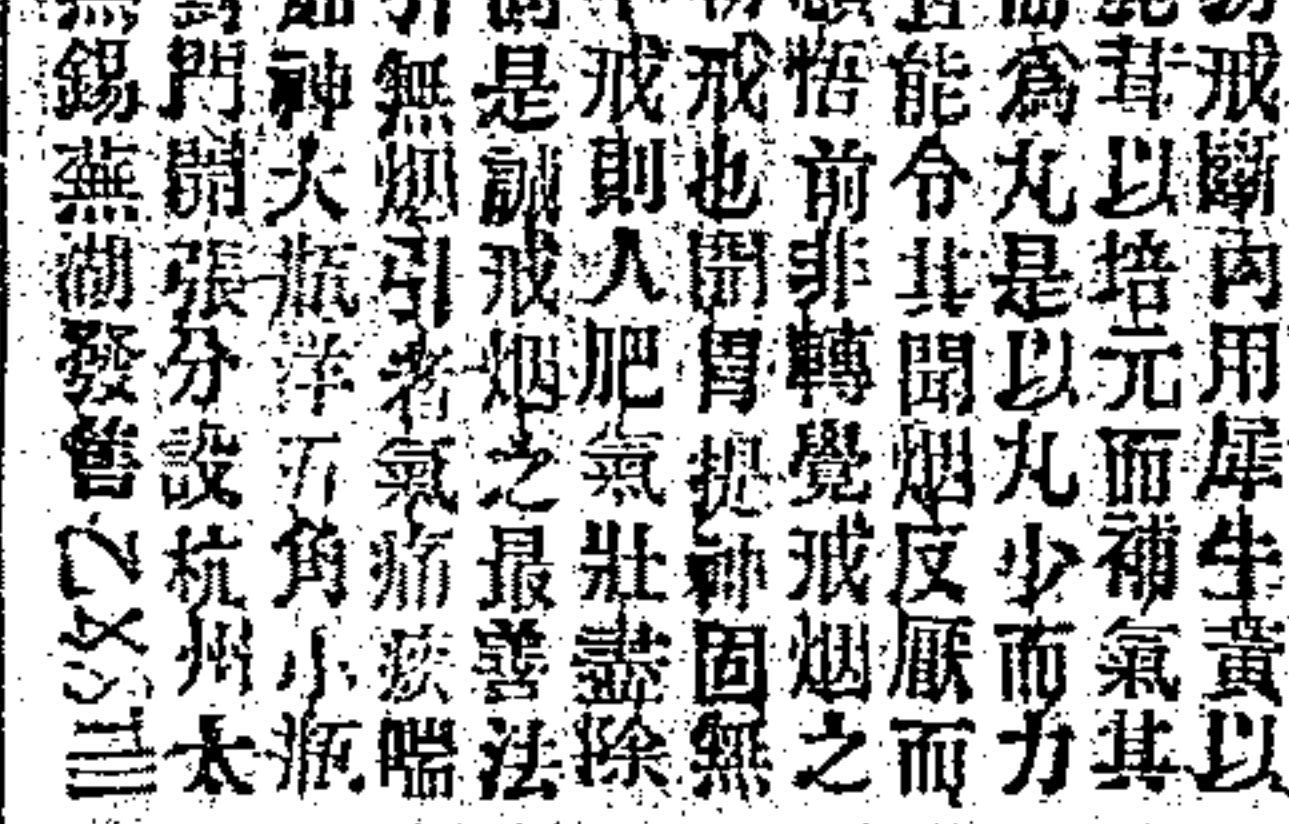 戒斷內用犀牛黃以
茸以培元而補氣其
為丸是以丸少而力
能令其聞烟反厭而
悟前非轉覺戒烟之
戒也開胃提神固無
戒則人肥氣壯盡除
是誠戒烟之最善法
無烟引者氣痛痰喘
神大瓶洋五角小瓶
門開張分設杭州太
錫蕪湖發售